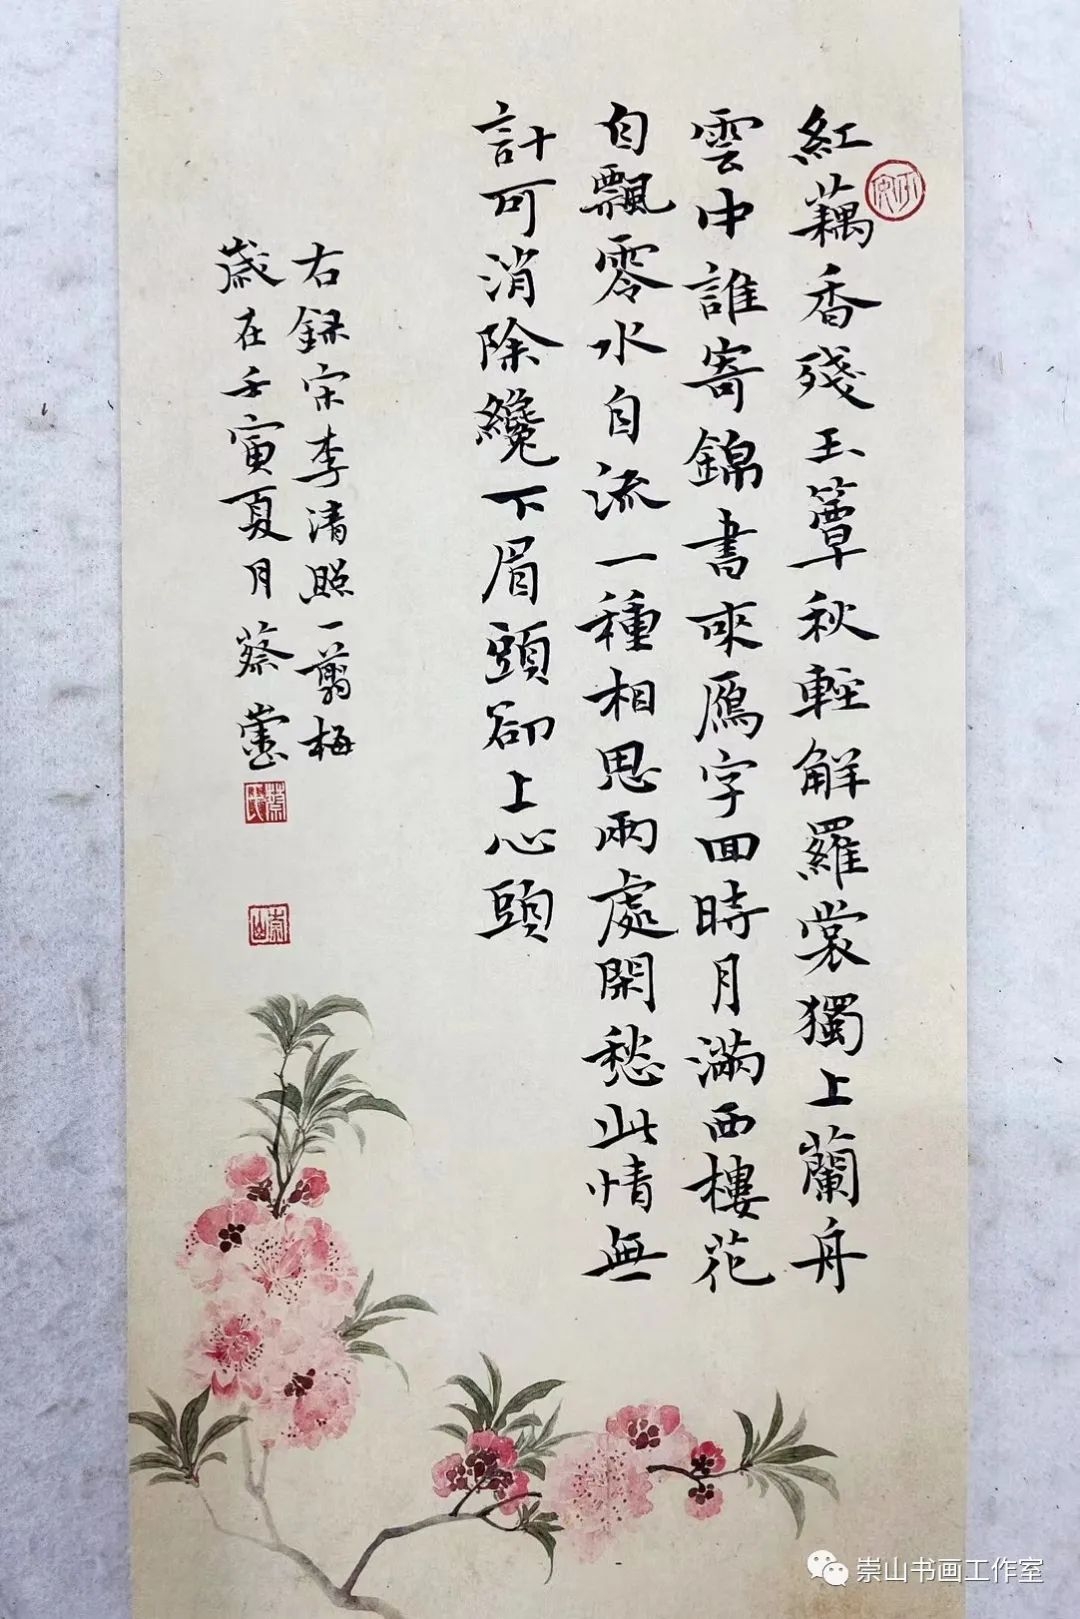 紅藕香殘玉簟秋輕解羅裳獨上蘭舟
雲中誰寄錦書來鴈字回時月滿西樓花
自飄零水自流一種相思兩處閑愁此情無
計可消除纔下眉頭卻上心頭
右録宋李清照一剪梅
歲在壬寅夏月蔡崇
蔡氏
崇山
崇山书画工作室